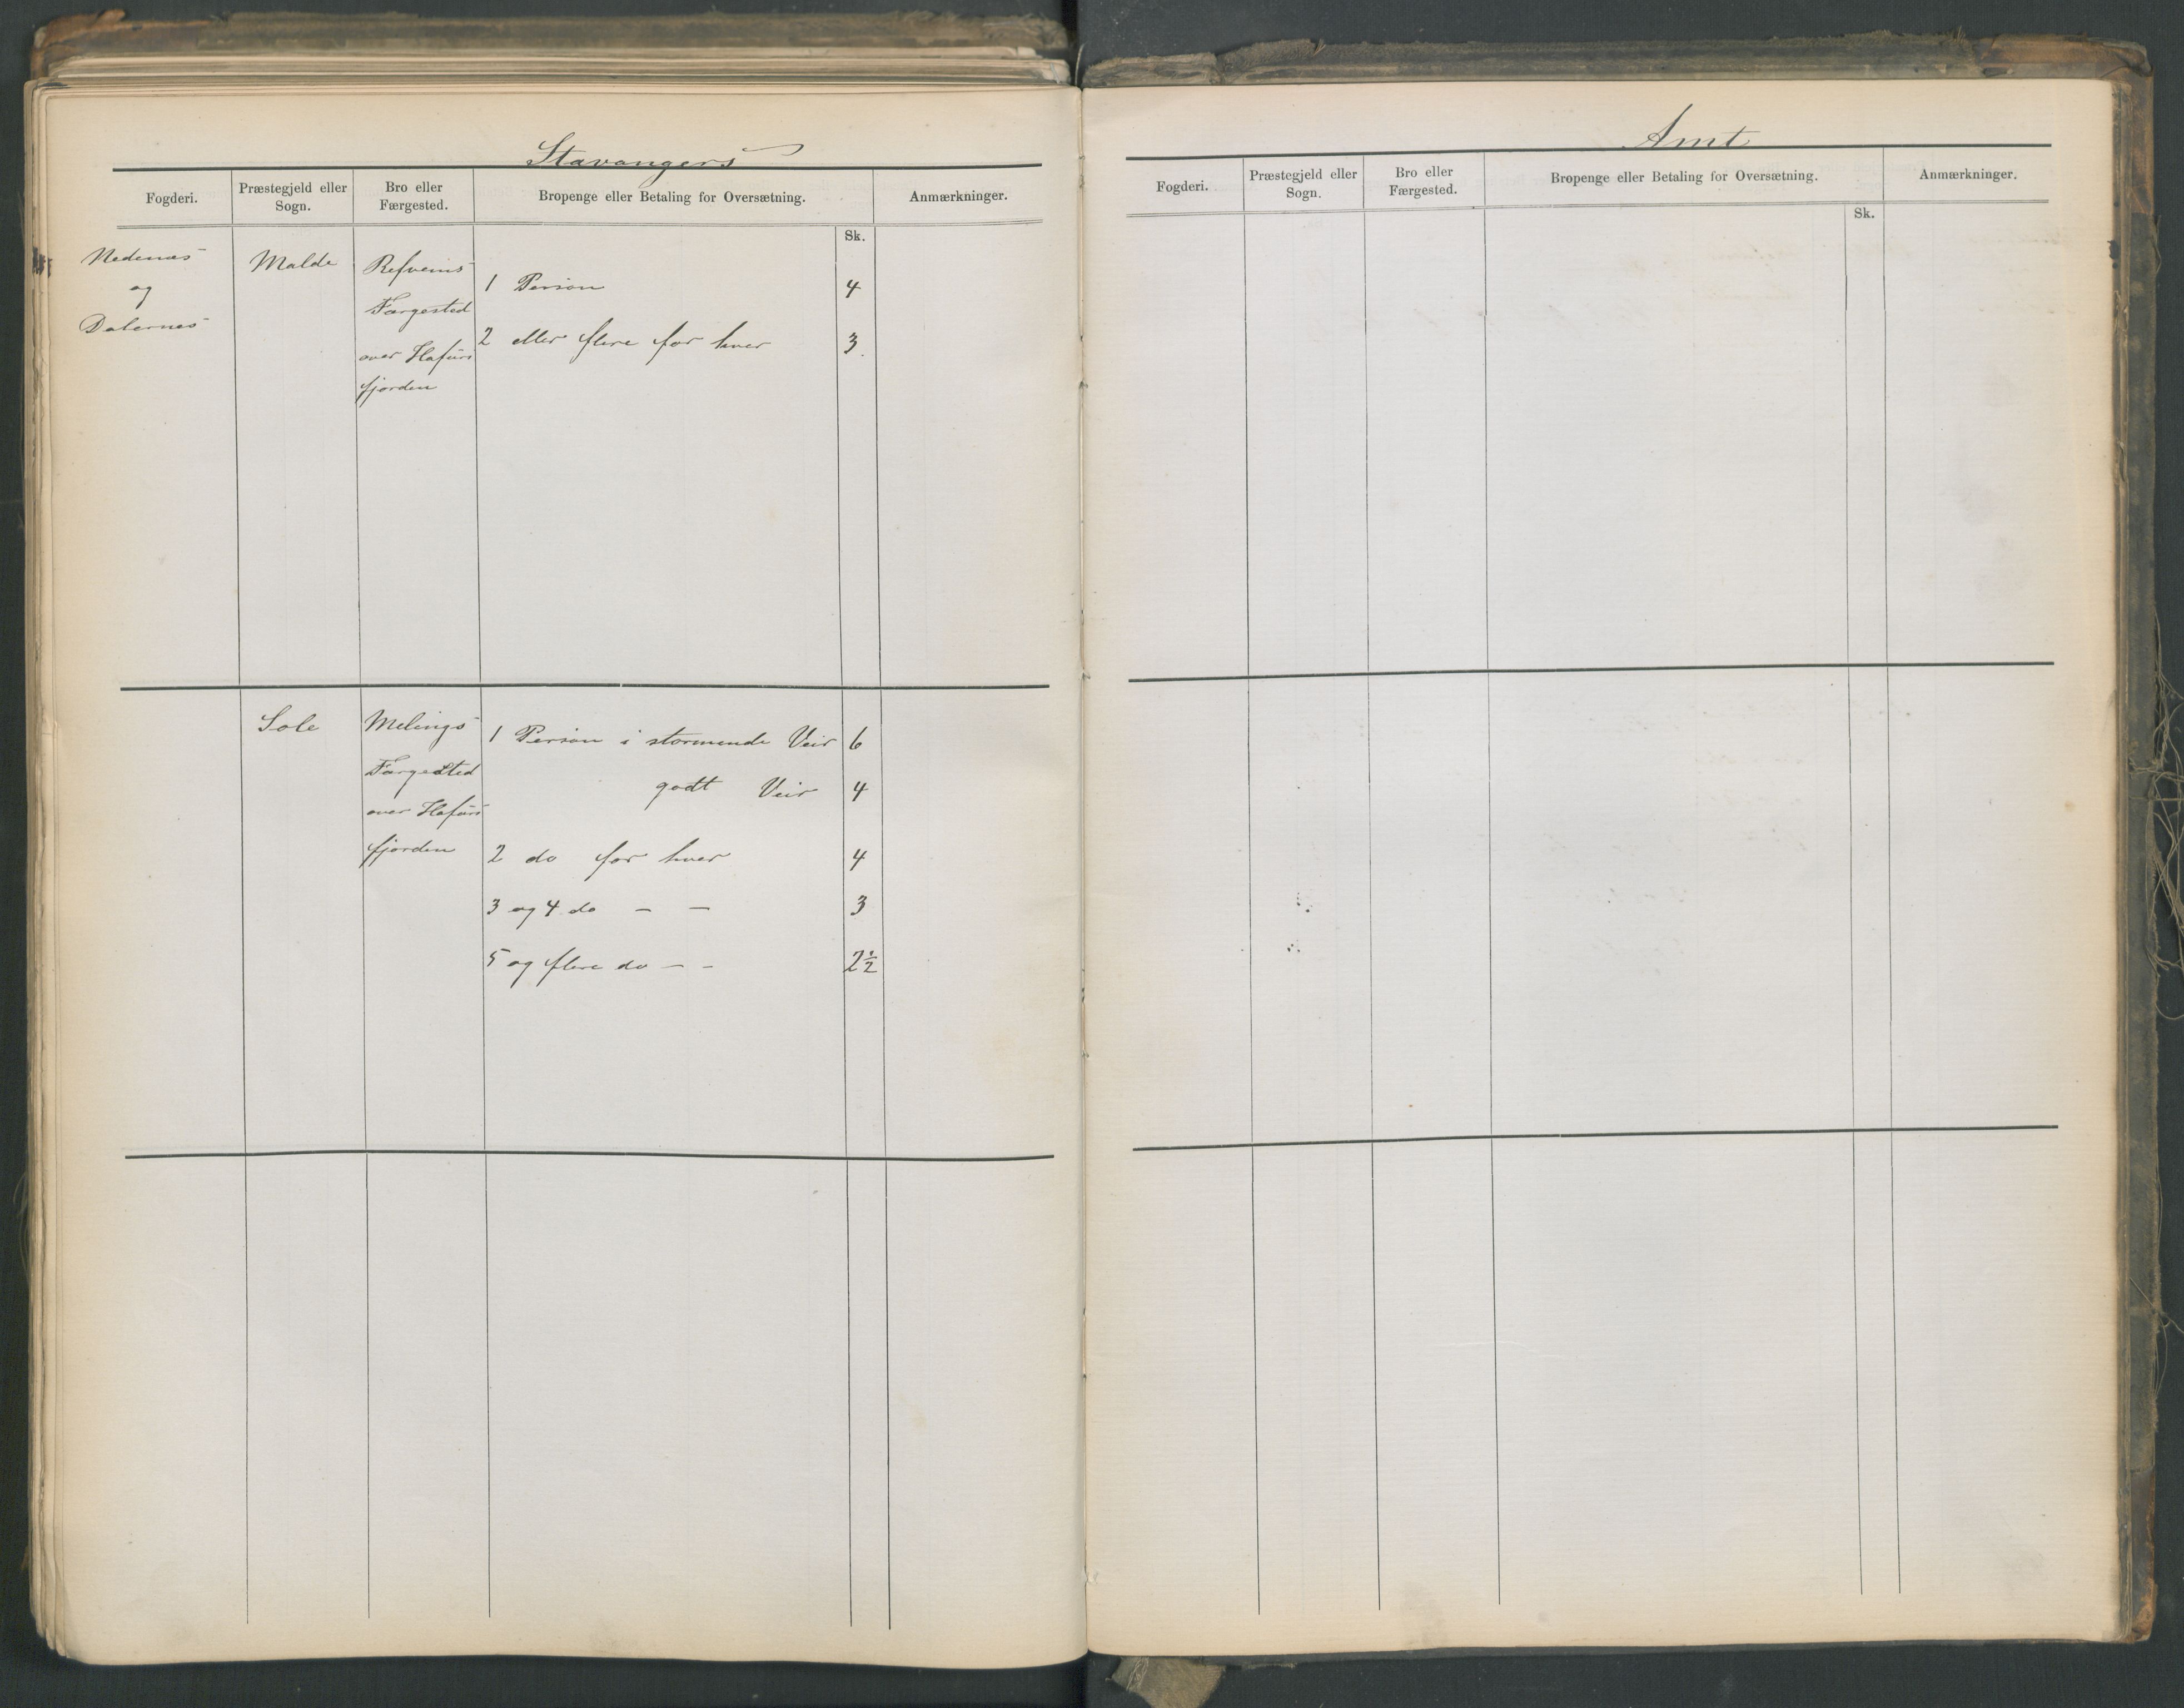 Stavangers
Fogderi. Præstegjeld eller Sogn. Bro eller Færgested. Bropenge eller Betaling for Oversætning. Anmærkninger.
Sk.
Nedenæs
og
Dalernes
Malde
Refheims
Færgested
over Hafurs
fjorden
1 Person 4
2 eller flere for hver 3
Sole
Melings
Færgested
over Hafurs
fjorden
1 Person i stormende Veir 6
godt Veir 4
2 do for hver 4
3 og 4 do — — 3
5 og flere do — — 2½
Amt
Fogderi. Præstegjeld eller Sogn. Bro eller Færgested. Bropenge eller Betaling for Oversætning. Anmærkninger.
Sk.